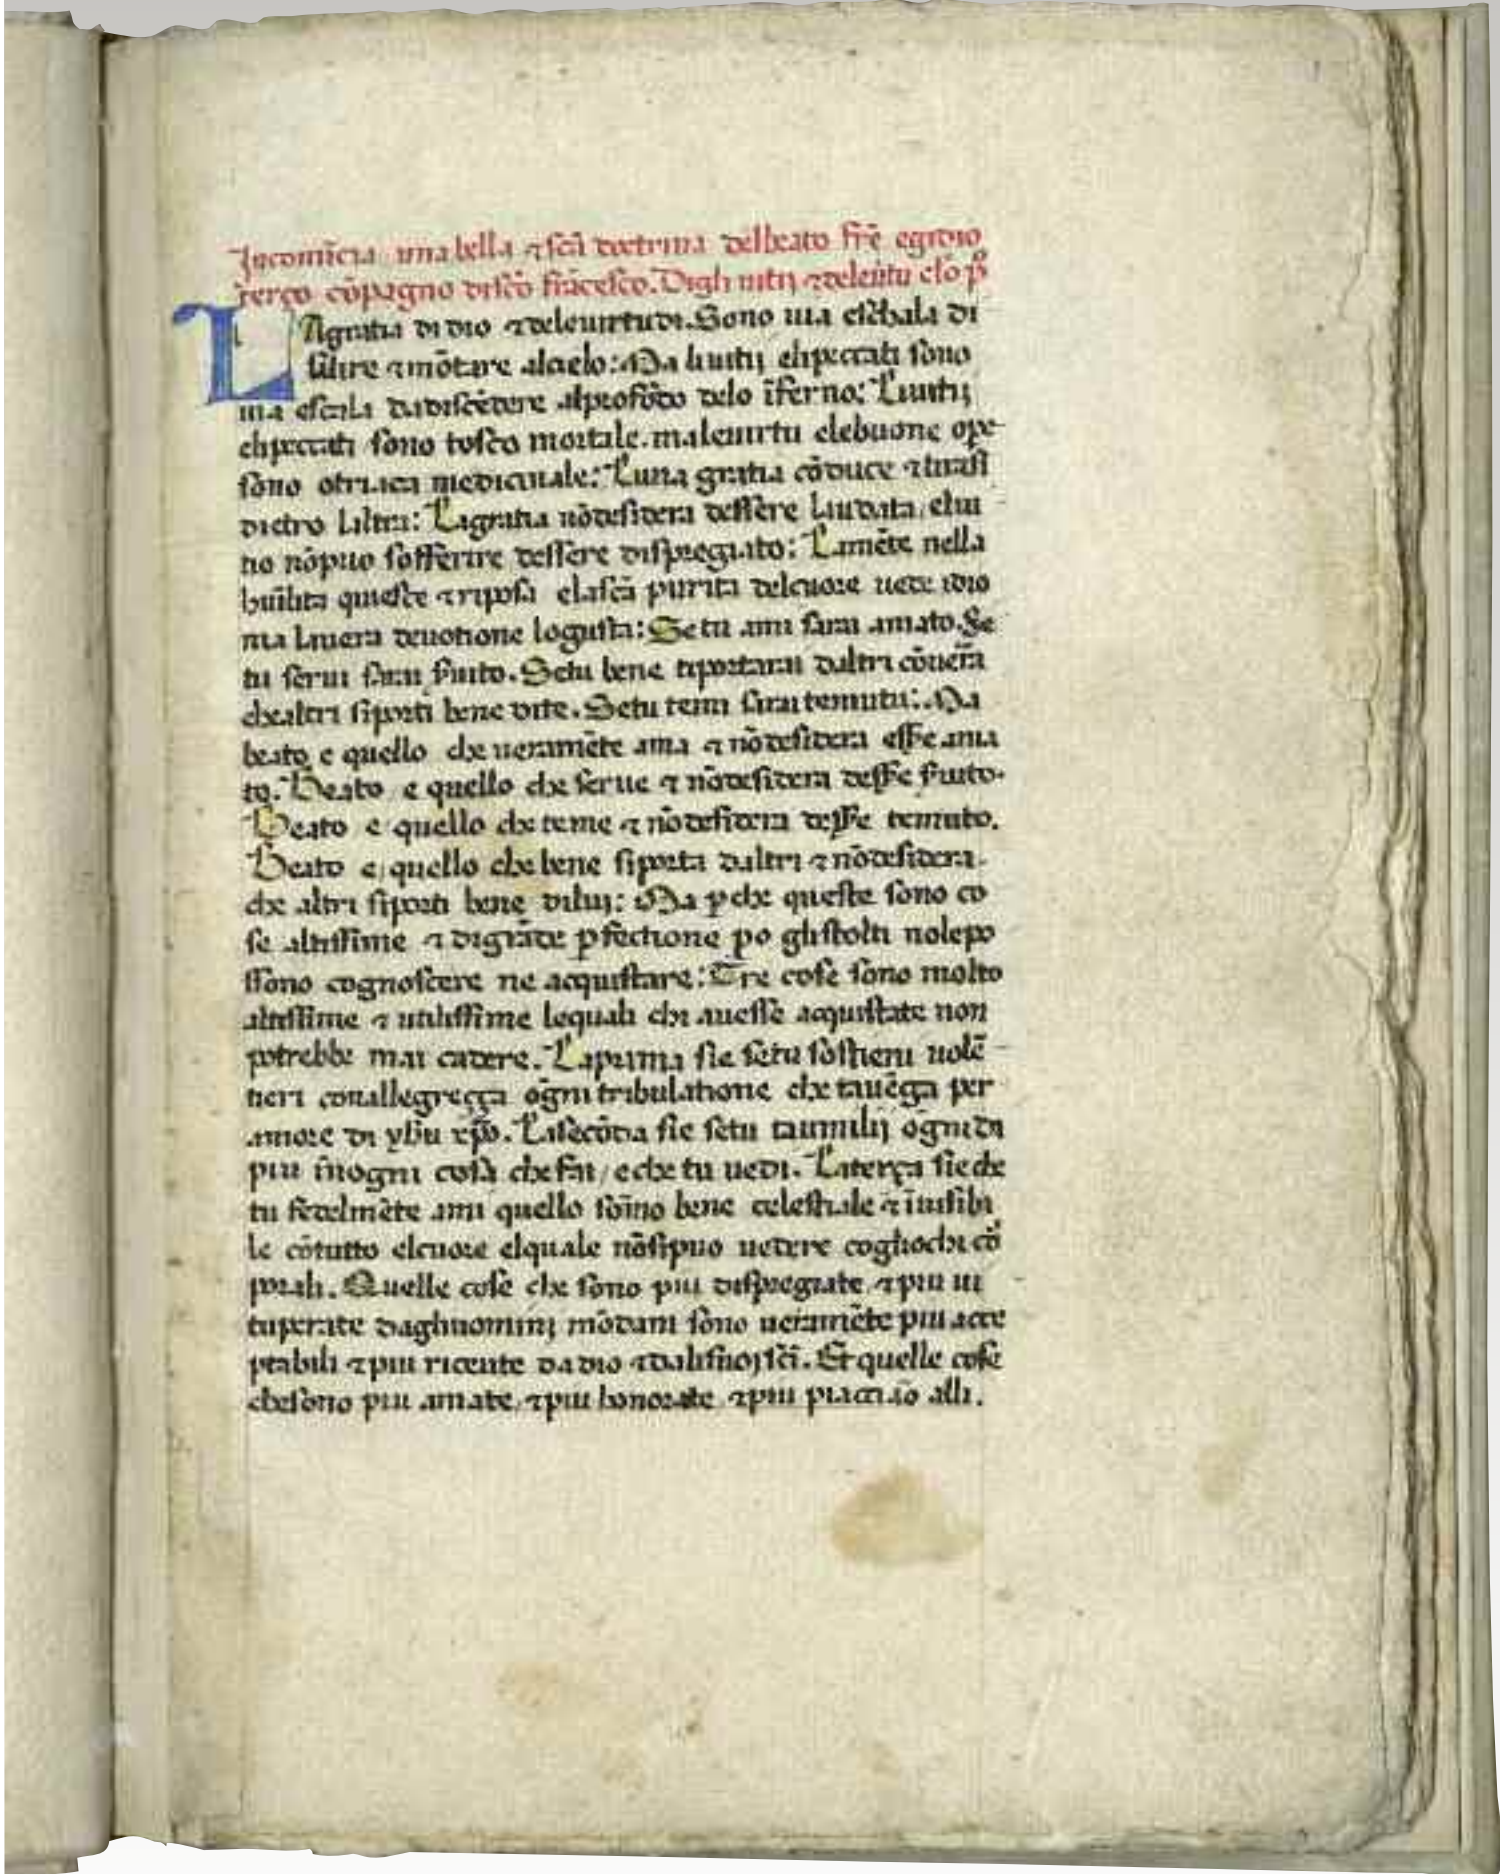 Incomīcia una bella ⁊ scā doctrina del beato frē egidio
terço cōpagno di scō frācesco. Degli uitij ⁊ dele uitu clo pº
LA gratia di dio ⁊ dele uirtudi. Sono uia eschala di
salire ⁊ mōtare alcielo: Ma li uitij elipeccati sono
uia escala dadiscēdere alprofōdo delo īferno: Liuitij
elipeccati sono tosco mortale. maleuirtu elebuone ope
sono otriaca medicinale: Luna gratia cōduce ⁊ tirasi
dietro laltra: Lagratia nōdesidera dessere laudata, elui
tio nōpuo sofferire dessere dispregiato: Lamēte nella
huīlita quiesce ⁊ riposa elascā purita delcuore uede idio
ma lauera deuotione logusta: Se tu ami sarai amato. Se
tu serui sarai ẜuito. Setu bene tiportarai daltri cōuerra
chealtri siporti bene dite. Setu temi sarai temuto: Ma
beato e quello che ueramēte ama ⁊ nōdesidera esse ama
to. Beato e quello che serue ⁊ nōdesidera desse ẜuito.
Beato e quello che teme ⁊ nōdesidera desse temuto.
Beato e quello che bene siporta daltri ⁊ nōdesidera
che altri siporti bene dilui: Ma ꝑche queste sono co
se altissime ⁊ digrāde ꝑfectione po glistolti nolepo
ssono cognoscere ne acquistare: Tre cose sono molto
altissime ⁊ utilissime lequali chi auesse acquistate non
potrebbe mai cadere. Laprima sie setu sostieni uolē
tieri conallegreçça ōgni tribulatione che tauēga per
amore di yhū xp̄o. Lasecōda sie setu taumilij ōgni di
piu īnogni cosa che fai / eche tu uedi. Laterça sieche
tu fedelmēte ami quello sōmo bene celestiale ⁊ īuisibi
le cōtutto elcuore elquale nōsipuo uedere cogliochi cō
porali. Quelle cose che sono piu dispregiate, ⁊ piu ui
tuperate daglhuominj mōdani sono ueramēte piu acce
ptabili ⁊ piu riceute dadio ⁊ dalisuoj scī. Et quelle cose
chesono piu amate, ⁊ piu honorate, ⁊ piu piacciāo alli.